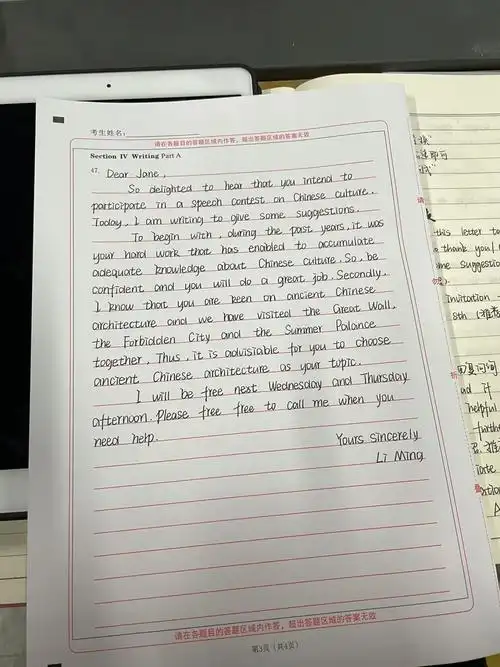 考生姓名:
请在各题目的答题区域内作答，超出答题区域的答案无效
Section IV Writing Part A
47. Dear Jane,
So delighted to hear that you intend to
participate in a speech contest on Chinese culture.
Today, I am writing to give some suggestions.
To begin with, during the past years, it was
your hard work that has enabled to accumulate
adequate knowledge about Chinese culture. So, be
confident and you will do a great job. Secondly,
I know that you are keen on ancient Chinese
architecture and we have visited the Great Wall,
the Forbidden City and the Summer Palance
together. Thus, it is advisiable for you to choose
ancient Chinese architecture as your topic.
I will be free next Wednesday and Thursday
afternoon. Please free free to call me when you
need help.
Yours sincerely
Li Ming
请在各题目的答题区域内作答，超出答题区域的答案无效
第3页（共4页）
请
this letter to
thank you!
me suggestio
invitation
8th
ud it
helpful
furthe